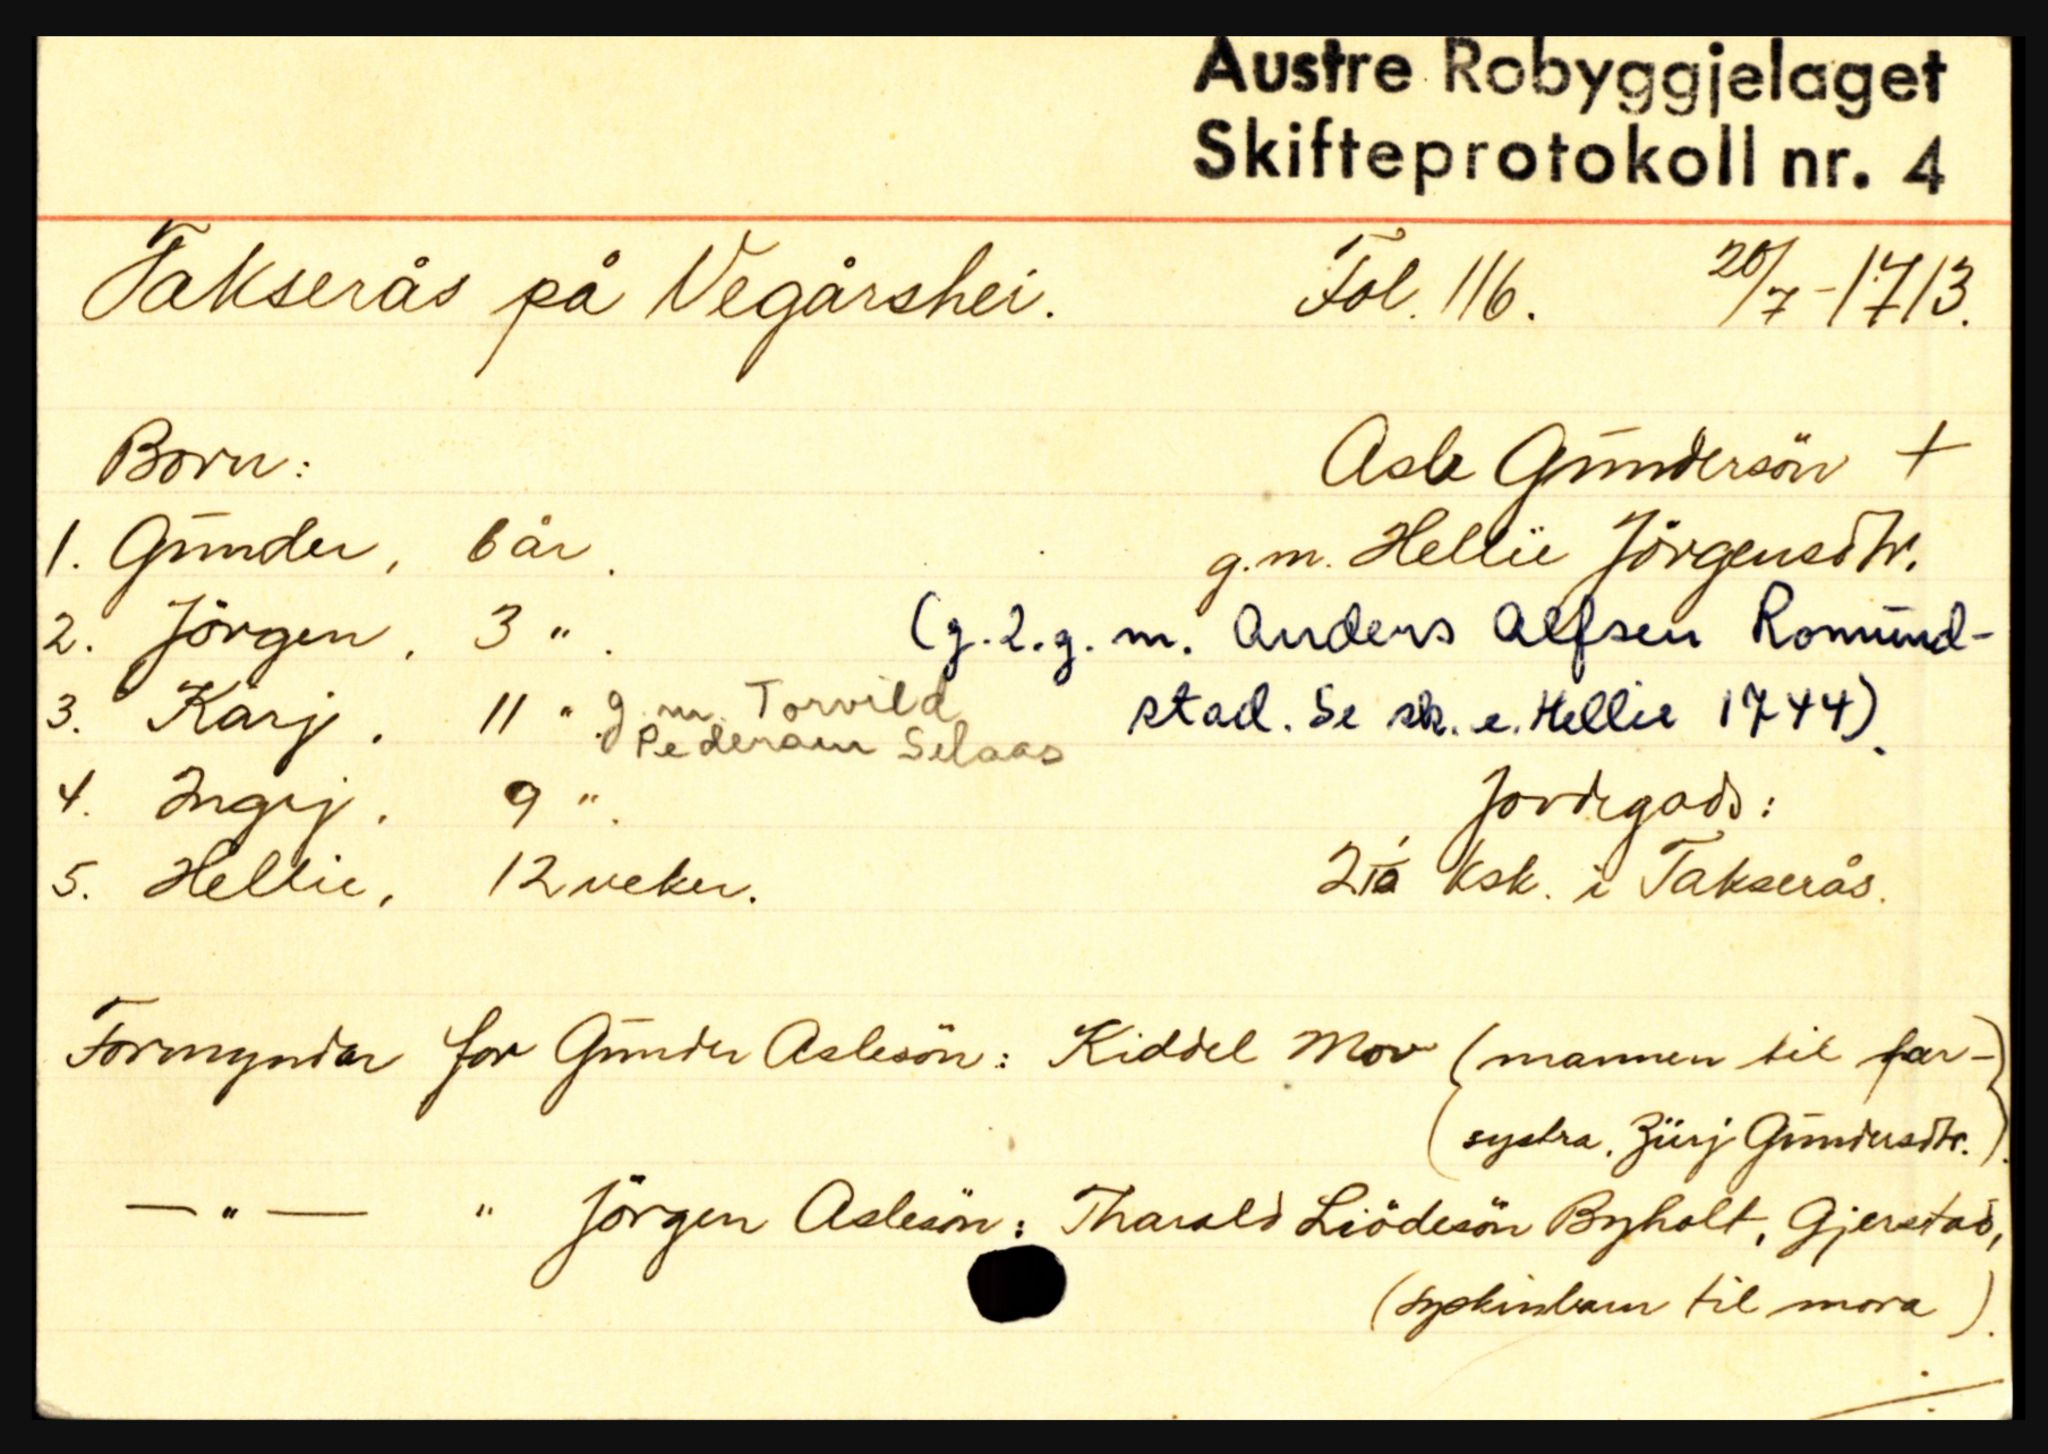 Austre Robyggjelaget
Skifteprotokoll nr. 4
Takserås på Vegårshei. Fol. 116. 20/7-1713.
Born: Asle Gŭndersön +
1. Gŭnder, 6 år. g.m. Hellie Jörgensdtr.
2. Jörgen, 3 ". (g.2.g. m. Anders Alfsen Romŭnd-
3. Karj, 11 ". g.m. Torvild stad. Se sk. e. Hellie 1744).
Pedersen Selaas
4. Ingrj, 9 ". Jordegods:
5. Hellie, 12 veker. 2 1/10 ksk. i Takserås.
Formyndar for Gŭnder Aslesön: Kiddel Mov (mannen til far-
systra, Zürj Gŭndersdtr.).
— " — " Jörgen Aslesön: Tharald Liödesön Byholt, Gjerstad,
(syskinbarn til mora).